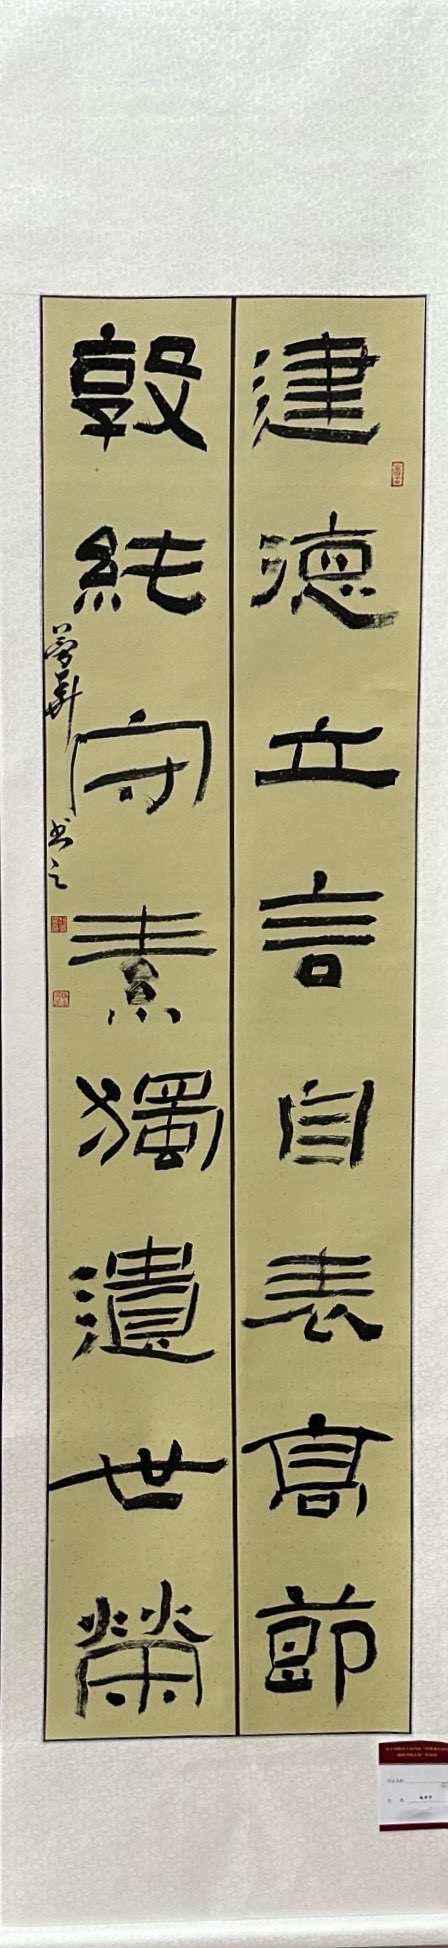 建德立言自表高節
敦純守素獨遺世榮
書之